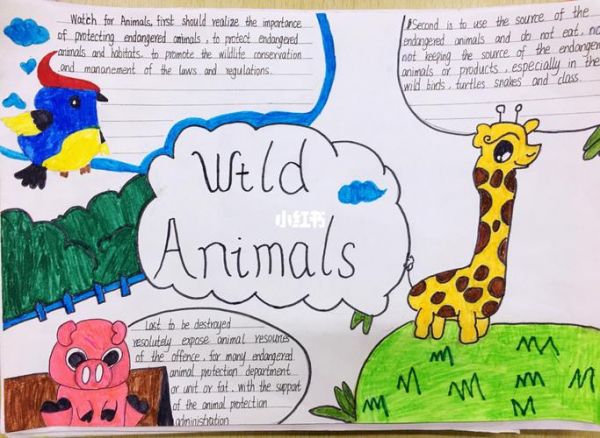 Watch for Animals, first should realize the importance
of protecting endangered animals, to protect endangered
animals and habitats, to promote the wildlife conservation
and manānement of the laws and regulations.
Second is to use the source of the
endangered animals and do not eat, no
not keeping the source of the endanger
animals or products, especially in the
wild birds, turtles snakes and class.
Wild
Animals
小红书
Last to be destroyed
resolutely expose animal resources
of the offence, for many endangered
animal protection department
or unit or fat, with the support
of the animal protection
administration